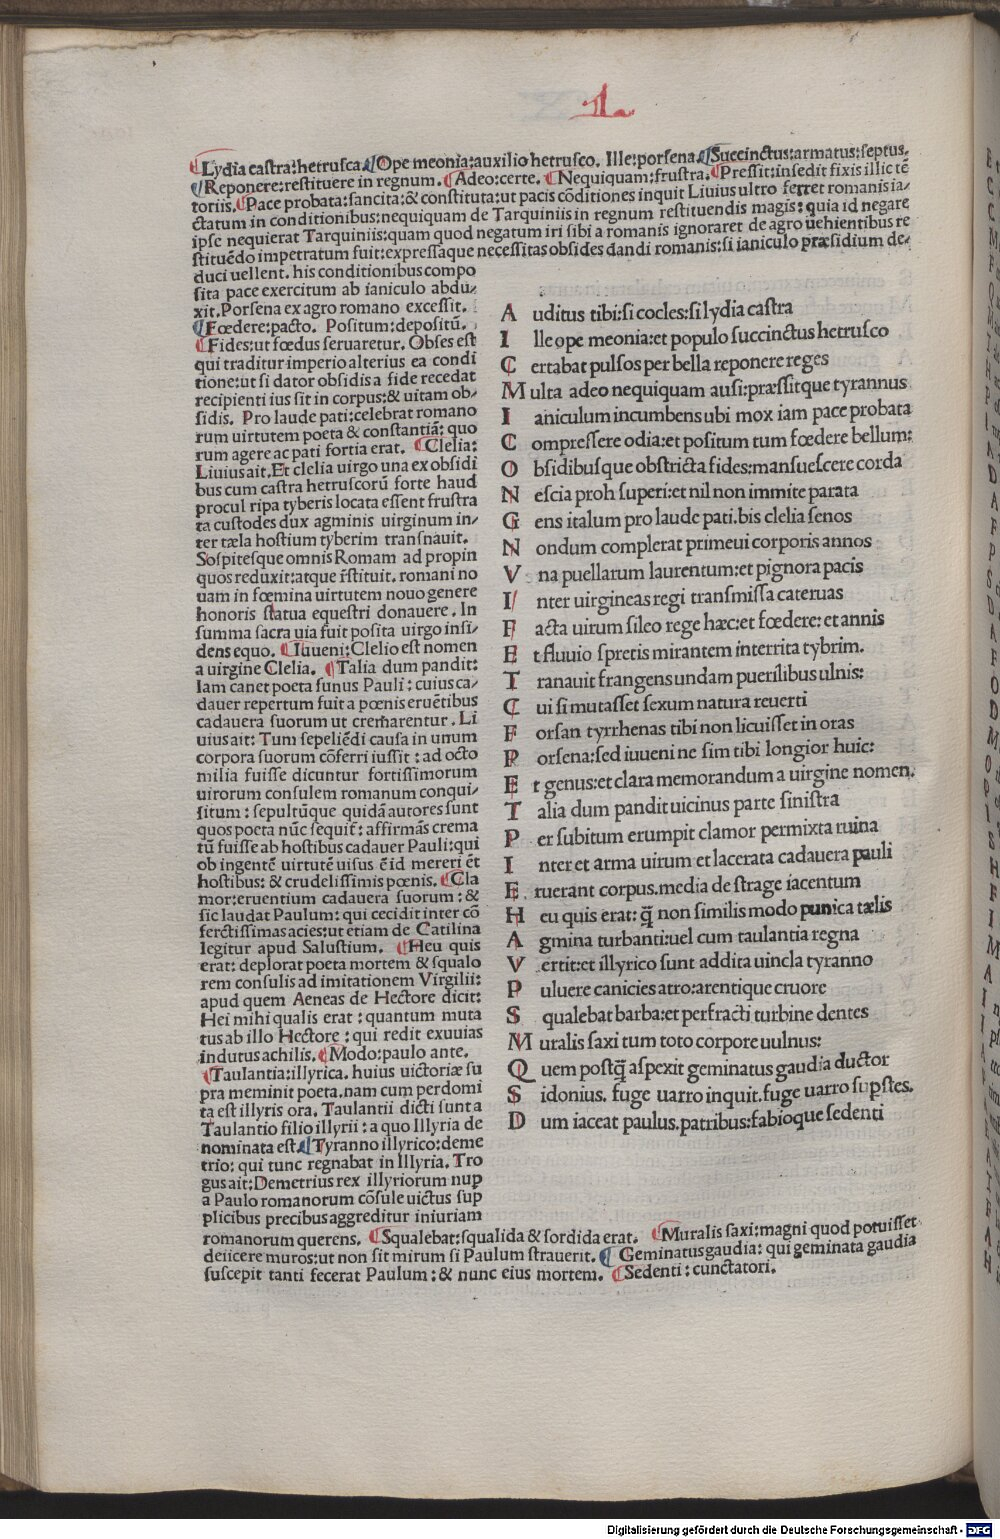 ⁌Lydia castra:hetrusca.⁌Ope meonia:auxilio hetrusco. Ille:porsena.⁌Succinctus:armatus:septus.
⁌Reponere:restituere in regnum. ⁌Adeo:certe. ⁌Nequiquam:frustra.⁌Pressit:insedit fixis illic tē
toriis.⁌Pace probata:sancita:& constituta:ut pacis cōditiones inquit Liuius ultro ferret romanis ia⸗
ctatum in conditionibus:nequiquam de Tarquiniis in regnum restituendis magis: quia id negare
ipse nequierat Tarquiniis:quam quod negatum iri sibi a romanis ignoraret de agro uehientibus re
stituēdo impetratum fuit:expressaque necessitas obsides dandi romanis:si ianiculo præsidium de⸗
duci uellent. his conditionibus compo
sita pace exercitum ab ianiculo abdu⸗
xit.Porsena ex agro romano excessit.
⁌Fœdere:pacto. Positum:depositū.
⁌Fides:ut fœdus seruaretur. Obses est
qui traditur imperio alterius ea condi
tione:ut si dator obsidis a fide recedat
recipienti ius sit in corpus:& uitam ob⸗
sidis. Pro laude pati:celebrat romano
rum uirtutem poeta & constantiā: quo
rum agere ac pati fortia erat. ⁌Clelia:
Liuius ait.Et clelia uirgo una ex obsidi
bus cum castra hetruscorū forte haud
procul ripa tyberis locata essent frustra
ta custodes dux agminis uirginum in⸗
ter tæla hostium tyberim transnauit.
Sospitesque omnis Romam ad propin
quos reduxit:atque r̄stituit. romani no
uam in fœmina uirtutem nouo genere
honoris statua equestri donauere. In
summa sacra uia fuit posita uirgo insi⸗
dens equo. ⁌Iuueni:Clelio est nomen
a uirgine Clelia. ⁌Talia dum pandit:
Iam canet poeta funus Pauli: cuius ca⸗
dauer repertum fuit a pœnis eruētibus
cadauera suorum ut cremarentur. Li
uius ait: Tum sepeliēdi causa in unum
corpora suorum cōferri iussit : ad octo
milia fuisse dicuntur fortissimorum
uirorum consulem romanum conqui⸗
situm : sepultūque quidā autores sunt
quos poeta nūc sequit̄: affirmās crema
tū fuisse ab hostibus cadauer Pauli:qui
ob ingentē uirtutē uisus ē id mereri ēt
hostibus: & crudelissimis pœnis.⁌Cla
mor:eruentium cadauera suorum : &
sic laudat Paulum: qui cecidit inter cō
fertissimas acies:ut etiam de Catilina
legitur apud Salustium. ⁌Heu quis
erat: deplorat poeta mortem & squalo
rem consulis ad imitationem Virgilii:
apud quem Aeneas de Hectore dicit:
Hei mihi qualis erat : quantum muta
tus ab illo Hectore : qui redit exuuias
indutus achilis.⁌Modo:paulo ante.
⁌Taulantia:illyrica. huius uictoriæ su
pra meminit poeta.nam cum perdomi
ta est illyris ora. Taulantii dicti sunt a
Taulantio filio illyrii: a quo Illyria de
nominata est.⁌Tyranno illyrico:deme
trio: qui tunc regnabat in Illyria. Tro
gus ait:Demetrius rex illyriorum nup
a Paulo romanorum cōsule uictus sup
plicibus precibus aggreditur iniuriam
romanorum querens. ⁌Squalebat:squalida & sordida erat. ⁌Muralis saxi:magni quod potuisset
deiicere muros:ut non sit mirum si Paulum strauerit. ⁌ Geminatus gaudia: qui geminata gaudia
suscepit tanti fecerat Paulum : & nunc eius mortem. ⁌Sedenti : cunctatori.
A uditus tibi:si cocles:si lydia castra
I lle ope meonia:et populo succinctus hetrusco
C ertabat pulsos per bella reponere reges
M ulta adeo nequiquam ausi:præssitque tyrannus
I aniculum incumbens ubi mox iam pace probata
C ompressere odia:et positum tum fœdere bellum:
O bsidibusque obstricta fides:mansuescere corda
N escia proh superi:et nil non immite parata
G ens italum pro laude pati.bis clelia senos
N ondum complerat primeui corporis annos
V na puellarum laurentum:et pignora pacis
I nter uirgineas regi transmissa cateruas
F acta uirum sileo rege hæc:et fœdere: et annis
E t fluuio spretis mirantem interrita tybrim.
T ranauit frangens undam puerilibus ulnis:
C ui si mutasset sexum natura reuerti
F orsan tyrrhenas tibi non licuisset in oras
P orsena:sed iuueni ne sim tibi longior huic:
E t genus:et clara memorandum a uirgine nomen.
T alia dum pandit uicinus parte sinistra
P er subitum erumpit clamor permixta ruina
I nter et arma uirum et lacerata cadauera pauli
E ruerant corpus.media de strage iacentum
H eu quis erat: q̄ȝ non similis modo punica tælis
A gmina turbanti:uel cum taulantia regna
V ertit:et illyrico sunt addita uincla tyranno
P uluere canicies atro:arentique cruore
S qualebat barba:et perfracti turbine dentes
M uralis saxi tum toto corpore uulnus:
Q uem postq̄ȝ aspexit geminatus gaudia ductor
S idonius. fuge uarro inquit.fuge uarro supstes.
D um iaceat paulus.patribus:fabioque sedenti
Digitalisierung gefördert durch die Deutsche Forschungsgemeinschaft - DFG